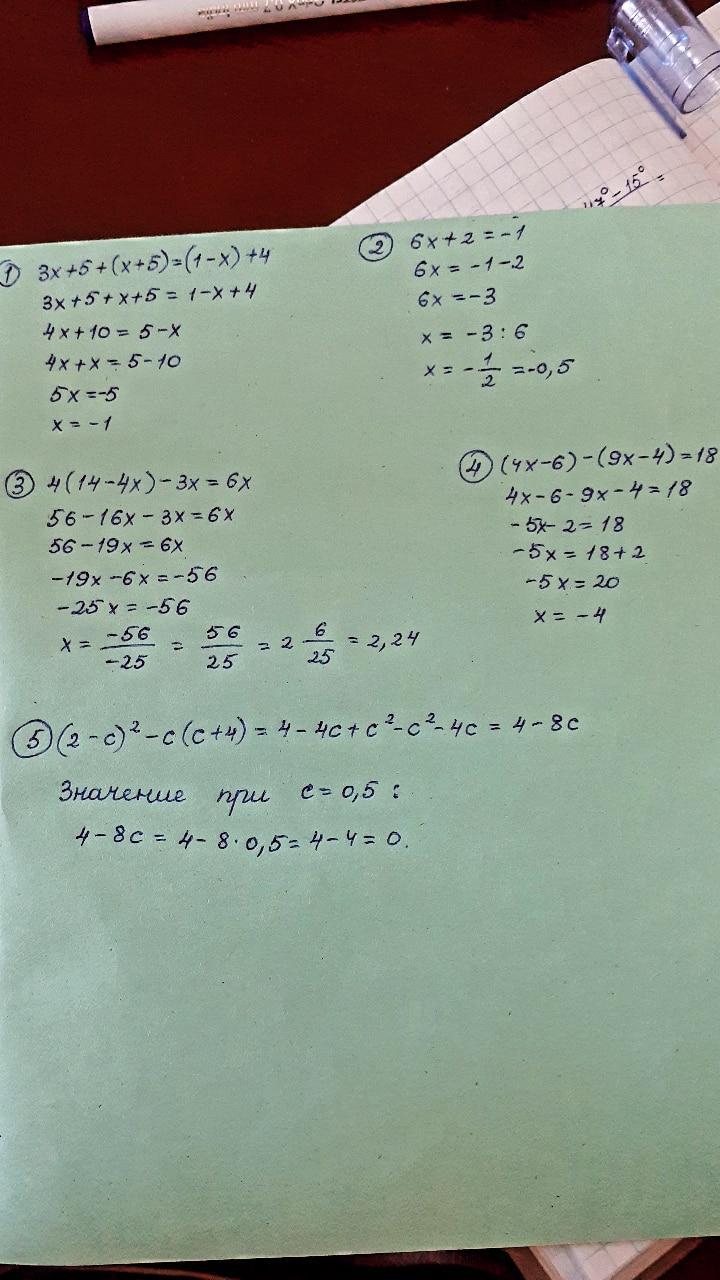 47° - 15° =
① 3x+5+(x+5)=(1-x)+4
3x+5+x+5 = 1-x+4
4x+10 = 5-x
4x+x = 5-10
5x =-5
x = -1
② 6x+2 = -1
6x = -1-2
6x = -3
x = -3 : 6
x = - 1/2 = -0,5
③ 4(14-4x)-3x = 6x
56-16x-3x = 6x
56-19x = 6x
-19x-6x = -56
-25x = -56
x = -56/-25 = 56/25 = 2 6/25 = 2,24
④ (4x-6)-(9x-4)=18
4x-6-9x-4=18
-5x-2=18
-5x = 18+2
-5x = 20
x = -4
⑤ (2-c)²-c(c+4) = 4-4c+c²-c²-4c = 4-8c
Значение при c = 0,5 :
4-8c = 4-8·0,5 = 4-4 = 0.